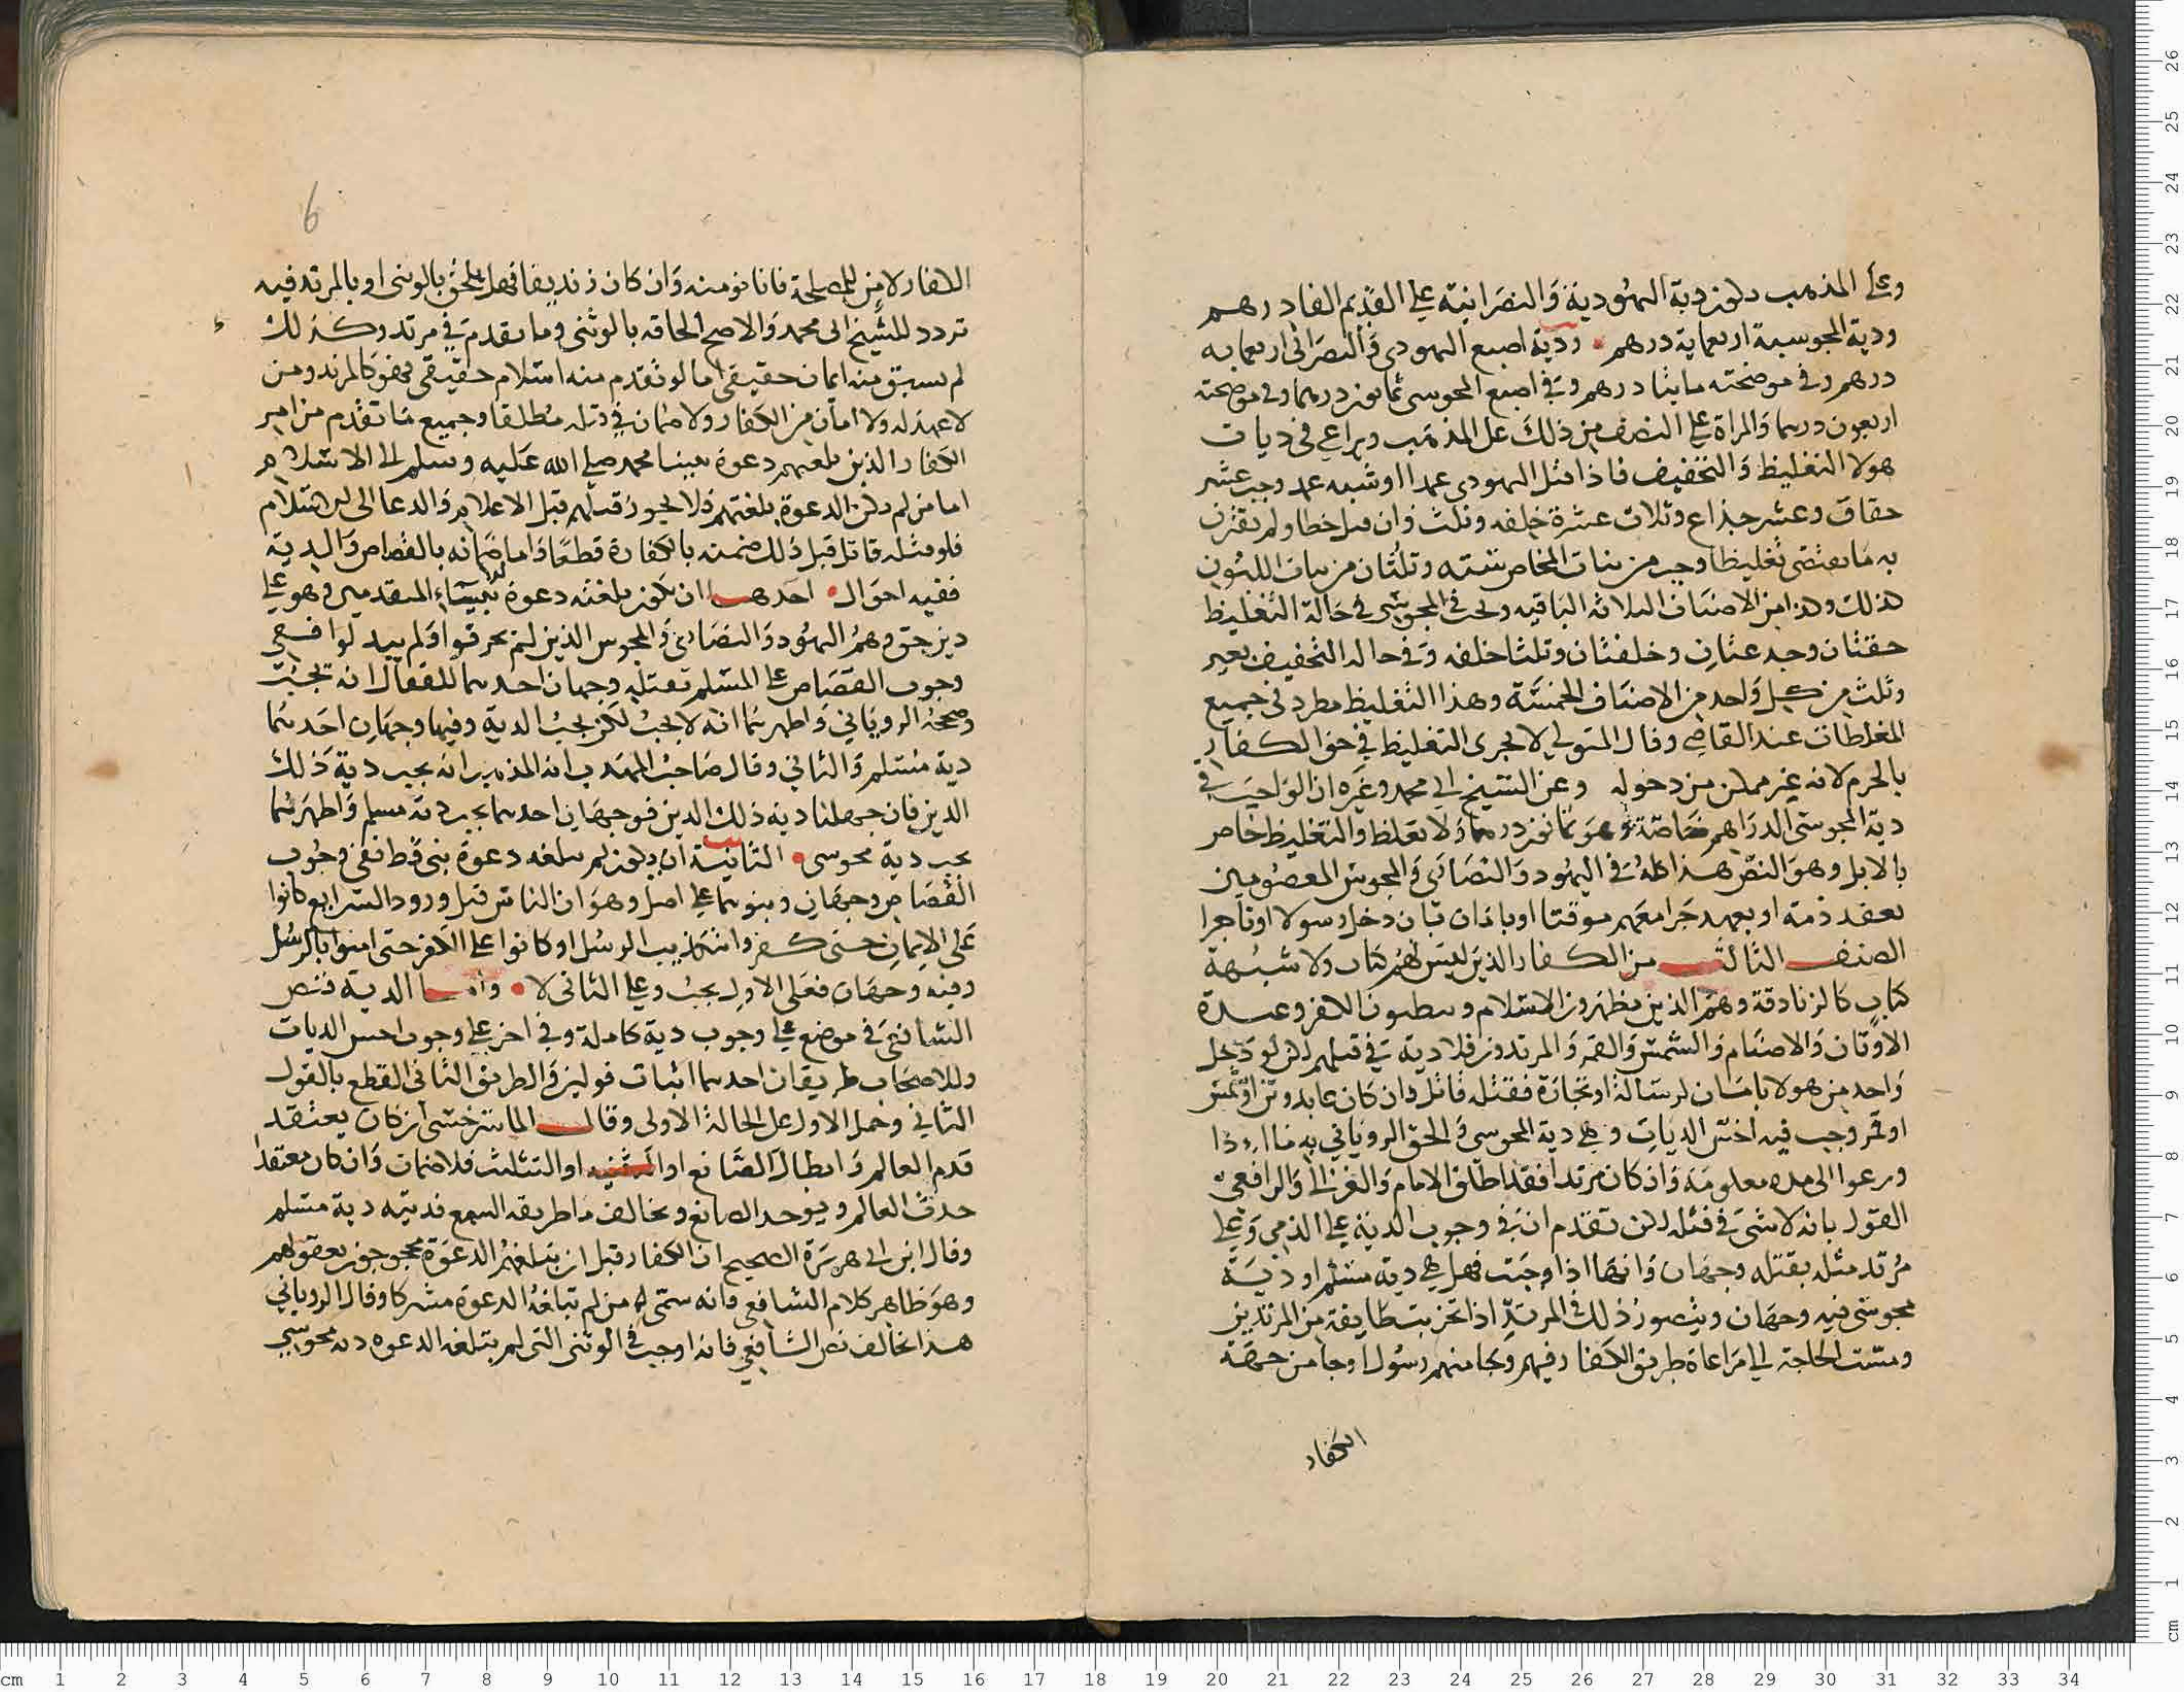 وعلى المذهب تكون دية اليهودية والنصرانية على القديم الفا درهم
ودية المجوسية اربعماية درهم ودية اصبع اليهودي والنصراني اربعمايه
درهم وفي موضحته مايتا درهم وفي اصبع المجوسي ثمانون درهما وفي موضحته
اربعون درهما والمراة على النصف من ذلك على المذهب ويراعى في ديات
هولا التغليظ والتخفيف فاذا قتل اليهودي عمدا او شبه عمد وجب عشر
حقاق وعشر جذاع وثلاث عشرة خلفه وثلث وان قتل خطا ولم يقترن
به ما يقتضي تغليظا وجب من بنات المخاض سته وثلثان من بنات اللبون
كذلك وهذا من الاصناف الثلاثه الباقيه ويجب في المجوسي في حالة التغليظ
حقتان وجذعتان وخلفتان وثلثا خلفه وفي حاله التخفيف بعير
وثلث من كل واحد من الاصناف الخمسة وهذا التغليظ مطرد في جميع
المغلظات عند القاضي وقال المتولي لا يجري التغليظ في حق الكفار
بالحرم لانه غير ممكن من دخوله وعن الشيخ ابي محمد وغيره ان الواجب في
دية المجوسي الدراهم خاصة وهو ثمانون درهما ولا تغلظ والتغليظ خاص
بالابل وهو النص هذا كله في اليهود والنصارى والمجوس المعصومين
بعقد ذمة او بعهد جرا معهم موقتا او بامان بان دخل رسولا او تاجرا
الصنف الثالث من الكفار الذين ليس لهم كتاب ولا شبهة
كتاب كالزنادقة وهم الذين يظهرون الاسلام ويبطنون الكفر وعبدة
الاوثان والاصنام والشمس والقمر والمرتدون فلا دية في قتلهم لكن لو دخل
واحد من هولا بامان لرسالة او تجارة فقتله قاتل وان كان عابد وثن او شمس
او قمر وجب فيه اخس الديات وهي دية المجوسي والحق الروياني به ما اذا
ودعوا الى مده معلومة وان كان مرتدا فقد اطلق الامام والغزالي والرافعي
القول بانه لا شي في قتله لكن تقدم ان في وجوب الدية على الذمي وعلى
مرتد مثله بقتله وجهان وانها اذا وجبت فهل هي دية مسلم او دية
مجوسي فيه وجهان ويتصور ذلك في المرتد اذا تحزبت طايفة من المرتدين
ومست الحاجة الى مراعاة طريق الكفار فيهم وجا منهم رسول او جا من جهة
الكفار
6
الكفار لامن للمصلحة فانا نومنه وان كان زنديقا فهل يلحق بالوثني او بالمرتد فيه
تردد للشيخ ابي محمد والاصح الحاقه بالوثني وما تقدم في مرتد وكذلك
لم يسبق منه ايمان حقيقي اما لو تقدم منه اسلام حقيقي فهو كالمرتد ومن
لا عهد له ولا امان من الكفار ولا ضمان في قتله مطلقا وجميع ما تقدم من امر
الكفار الذين بلغتهم دعوة نبينا محمد صلى الله عليه وسلم الى الاسلام
اما من لم تكن الدعوة بلغتهم فلا يجوز قتلهم قبل الاعلام والدعا الى الاسلام
فلو قتله قاتل قبل ذلك ضمنه بالكفارة قطعا واما ضمانه بالقصاص والدية
ففيه احوال احدها ان تكون بلغته دعوة بعض الانبياء المتقدمين وهو على
دين حق وهم اليهود والنصارى والمجوس الذين لم يحرفوا ولم يبدلوا ففي
وجوب القصاص على المسلم بقتله وجهان احدهما للقفال انه يجب
وصححه الروياني واظهرهما انه لا يجب لكن يجب الدية وفيها وجهان احدهما
دية مسلم والثاني وقال صاحب المهذب انه المذهب انه يجب دية ذلك
الدين فان جهلنا دية ذلك الدين فوجهان احدهما يجب دية مسلم واظهرهما
يجب دية مجوسي الثانية ان يكون لم يبلغه دعوة نبي قط ففي وجوب
القصاص وجهان وبنوهما على اصل وهو ان الناس قبل ورود الشرايع كانوا
على الايمان حتى كفروا بتكذيب الرسل او كانوا على الكفر حتى امنوا بالرسل
وفيه وجهان فعلى الاول يجب وعلى الثاني لا واما الدية فنص
الشافعي في موضع على وجوب دية كاملة وفي اخر على وجوب اخس الديات
وللاصحاب طريقان احدهما اثبات قولين والطريق الثاني القطع بالقول
الثاني وحمل الاول على الحالة الاولى وقال الماسرخسي ان كان يعتقد
قدم العالم وابطال الصانع او التثنيه او التثليث فلا ضمان وان كان معتقدا
حدث العالم ويوحد الصانع ويخالف ما طريقه السمع فديته دية مسلم
وقال ابن ابي هريرة الصحيح ان الكفار قبل ان تبلغهم الدعوة محجوجون بعقولهم
وهو ظاهر كلام الشافعي فانه سمى من لم تبلغه الدعوة مشركا وقال الروياني
هذا يخالف نص الشافعي فانه اوجب في الوثني التي لم تبلغه الدعوه ديه مجوسي